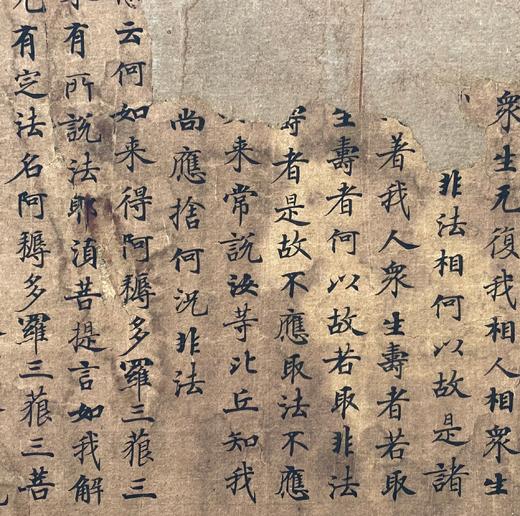 衆生无復我相人相衆生
非法相何以故是諸
著我人衆生壽者若取
生壽者何以故若取非法
壽者是故不應取法不應
来常說汝等比丘知我
尚應捨何況非法
云何如来得阿耨多羅三藐三
有所說法耶湏菩提言如我解
无有定法名阿耨多羅三藐三菩